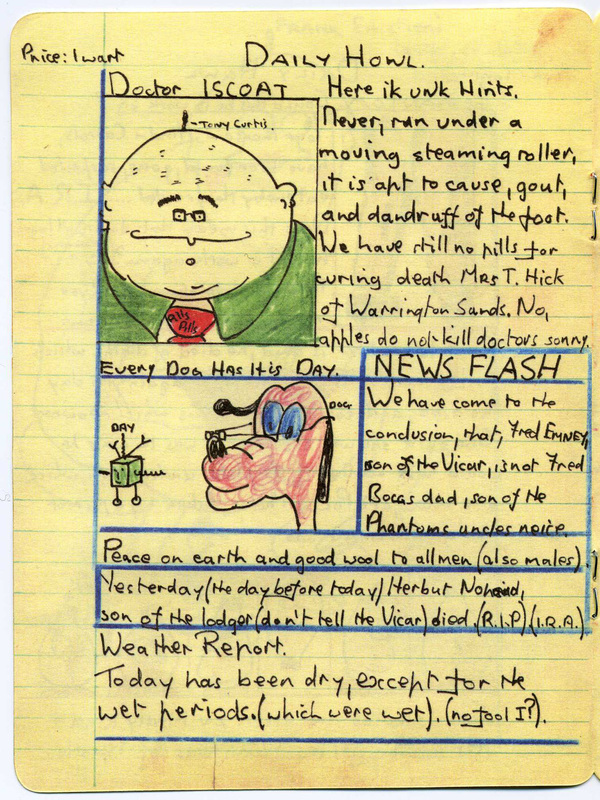 Price: 1 wart
DAILY HOWL.
Doctor ISCOAT
Tony Curtis.
Pills
Pills
Here ik unk Hints.
Never, run under a
moving steaming roller,
it is apt to cause, gout,
and dandruff of the foot.
We have still no pills for
curing death Mrs T. Hick
of Warrington Sands. No,
apples do not kill doctors sorry.
EVERY DOG HAS IT IS DAY.
DAY
DOG
NEWS FLASH
We have come to the
conclusion, that, Fred EMNEY,
son of the Vicar, is not Fred
Bocas dad, son of the
Phantoms uncles neice.
Peace on earth and good wool to all men (also males)
Yesterday (the day before today) Herbut
son of the lodger (don't tell the Vicar) died. (R.I.P) (I.R.A.)
Weather Report.
Today has been dry, except for the
wet periods. (which were wet). (no fool I?).